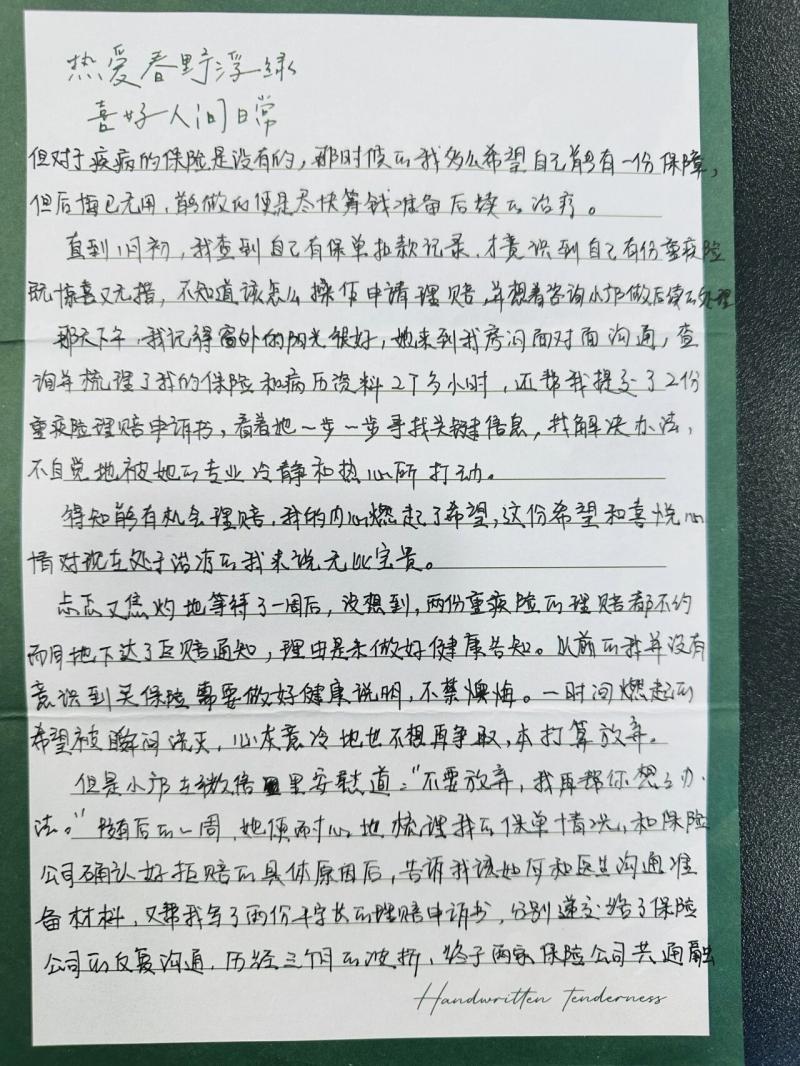 热爱春野浮绿
喜好人间日常
但对于疾病的保险是没有的，那时候的我多么希望自己能有一份保障，
但后悔已无用，能做的便是尽快筹钱准备后续的治疗。
直到1月初，我查到自己有保单扣款记录，才意识到自己有份重疾险
既惊喜又无措，不知道该怎么操作申请理赔，并想着咨询小邝做后续的处理
那天下午，我记得窗外的阳光很好，她来到我房间面对面沟通，查
询并梳理了我的保险和病历资料2个多小时，还帮我提交了2份
重疾险理赔申诉书，看着她一步一步寻找关键信息，找解决办法，
不自觉地被她的专业冷静和热心所打动。
得知能有机会理赔，我的内心燃起了希望，这份希望和喜悦心
情对现在处于治疗的我来说无比宝贵。
忐忑又焦灼地等待了一周后，没想到，两份重疾险的理赔都不约
而同地下达了拒赔通知，理由是未做好健康告知。以前的我并没有
意识到买保险需要做好健康说明，不禁懊悔。一时间燃起的
希望被瞬间浇灭，心灰意冷地也不想再争取，本打算放弃。
但是小邝在微信里安慰道："不要放弃，我再帮你想想办
法。"随后的一周，她便耐心地梳理我的保单情况，和保险
公司确认好拒赔的具体原因后，告诉我该如何和医生沟通准
备材料，又帮我写了两份千字长的理赔申诉书，分别递交给了保险
公司的反复沟通，历经三个月的波折，终于两家保险公司共通融
Handwritten Tenderness